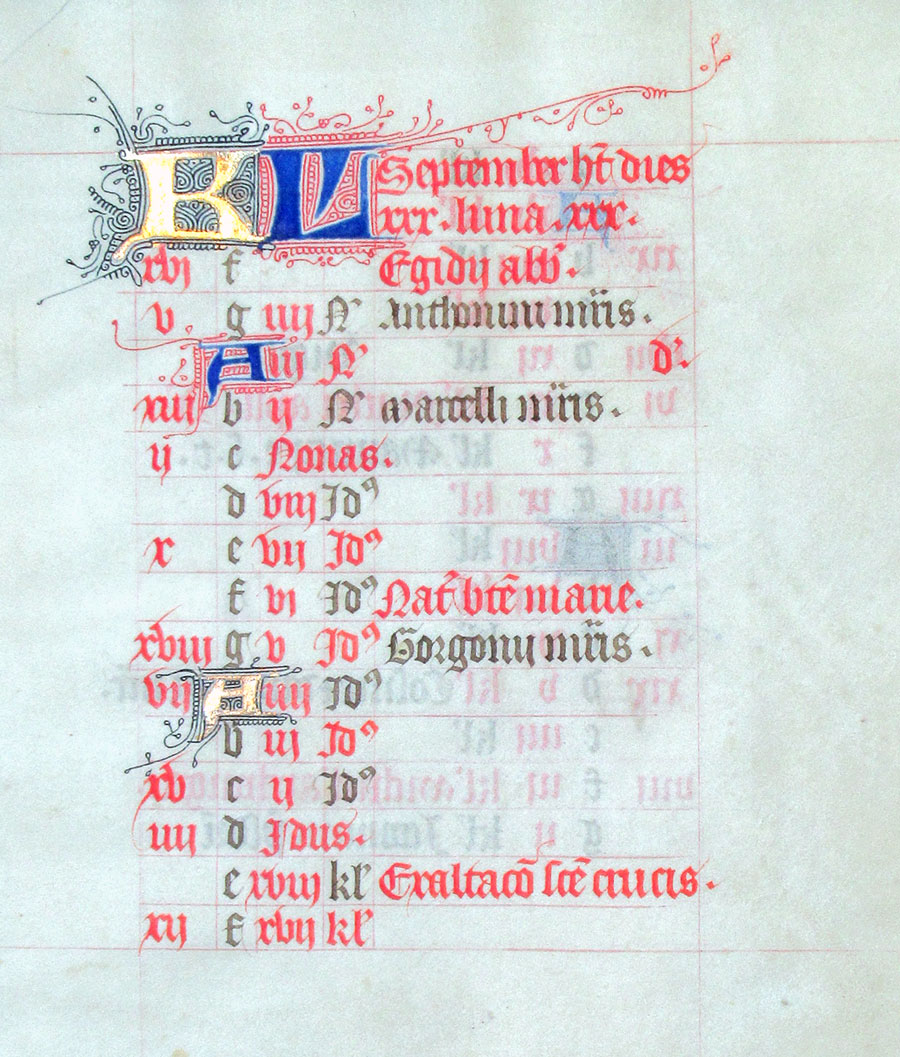 KL September ht̄ dies
xxx . luna . xxx .
xvj f Egidij abb̄ .
v g iiij N' Anthonini mr̄is .
A iij N' d'.
xiij b ij N' Marcelli mr̄is .
ij c Nonas .
d viij Jdꝰ
x e vij Jdꝰ
f vj Jdꝰ Nat̄ bt̄e marie .
xviij g v Jdꝰ Gorgonij mr̄is .
vij A iiij Jdꝰ
b iij Jdꝰ
xv c ij Jdꝰ
iiij d Jdus .
e xviij kl' Exaltaco͂ sc̄e crucis .
xij f xvij kl'